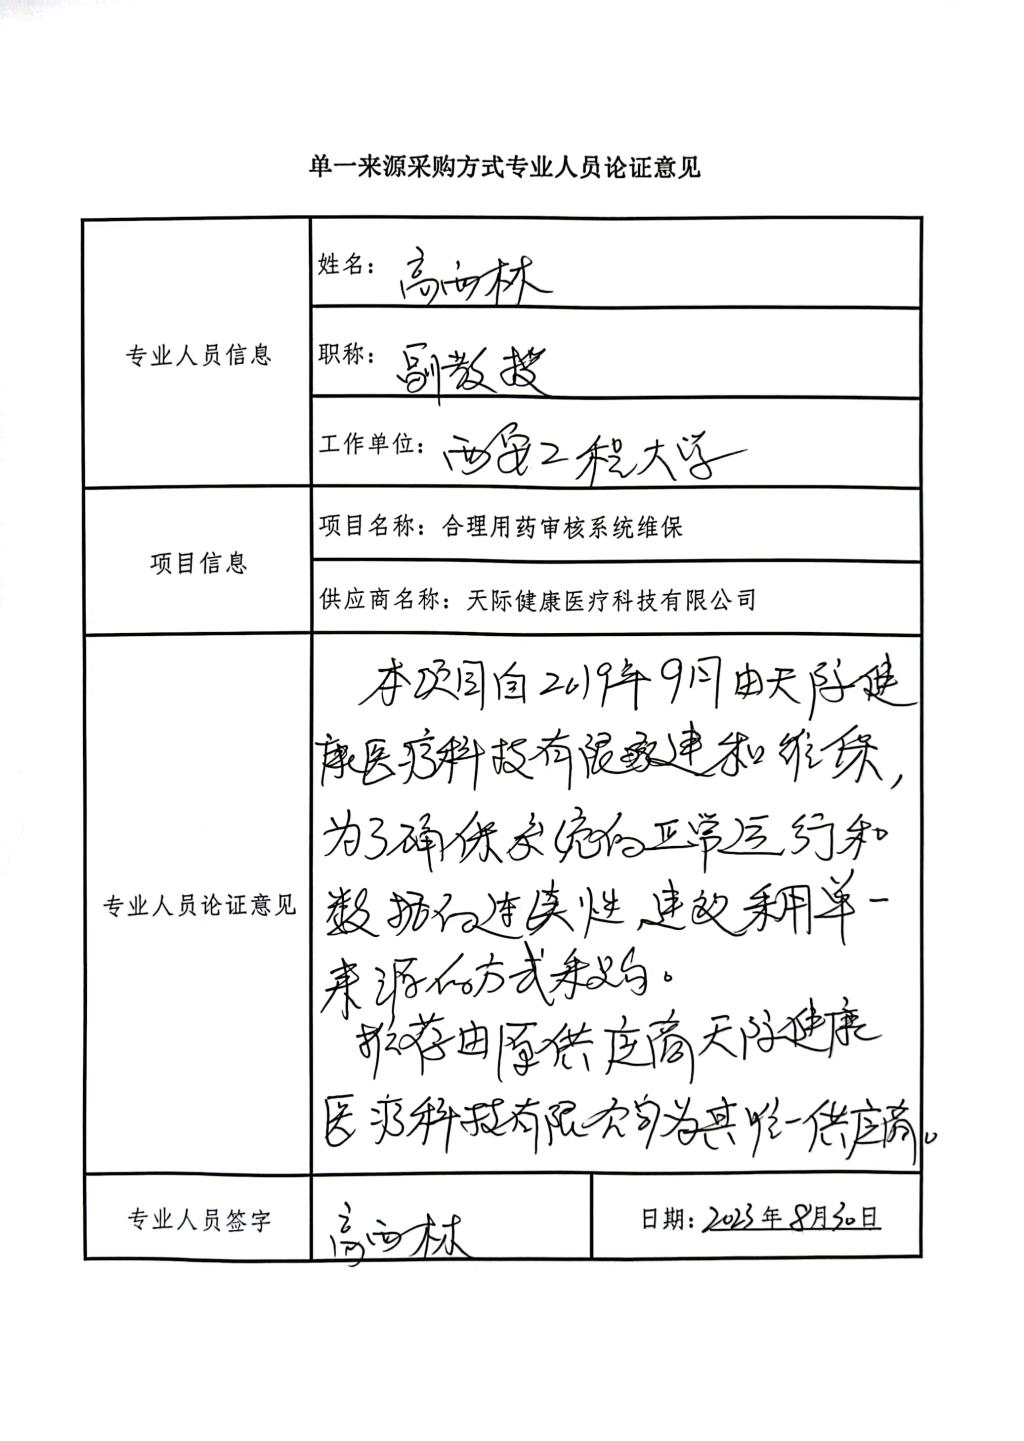 单一来源采购方式专业人员论证意见
专业人员信息
姓名：高西林
职称：副教授
工作单位：西安工程大学
项目信息
项目名称：合理用药审核系统维保
供应商名称：天际健康医疗科技有限公司
专业人员论证意见
本项目自2019年9月由天际健
康医疗科技有限承建和维保，
为了确保系统的正常运行和
数据的连续性、建议采用单一
来源的方式采购。
推荐由原供应商天际健康
医疗科技有限公司为其唯一供应商。
专业人员签字
高西林
日期：2023年8月30日